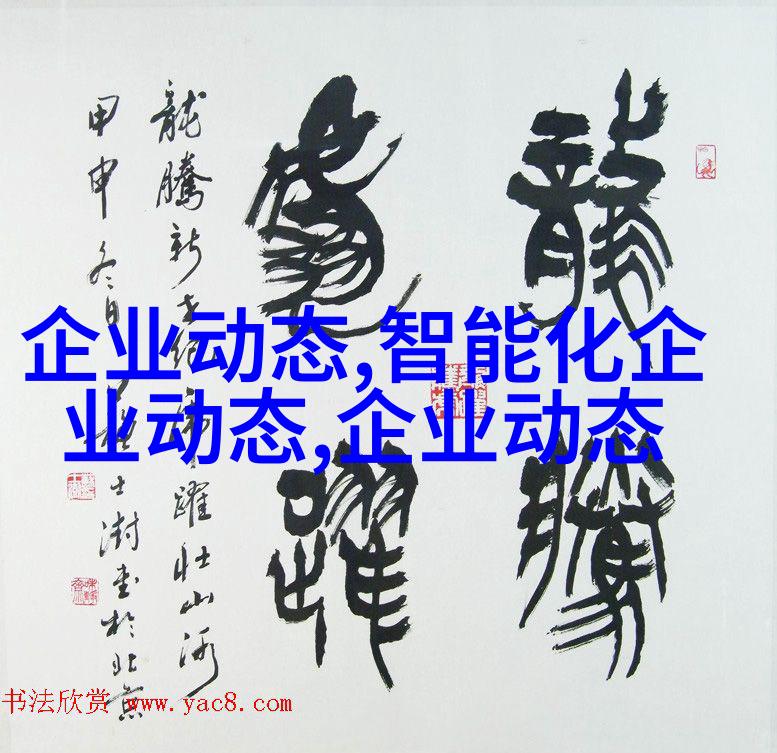 龍騰
鳥躍
龍騰新世紀
躍壯山河
甲申冬日
士澍書於北京
企业动态,智能化企
业动态,企业动态
书法欣赏 www.yac8.com